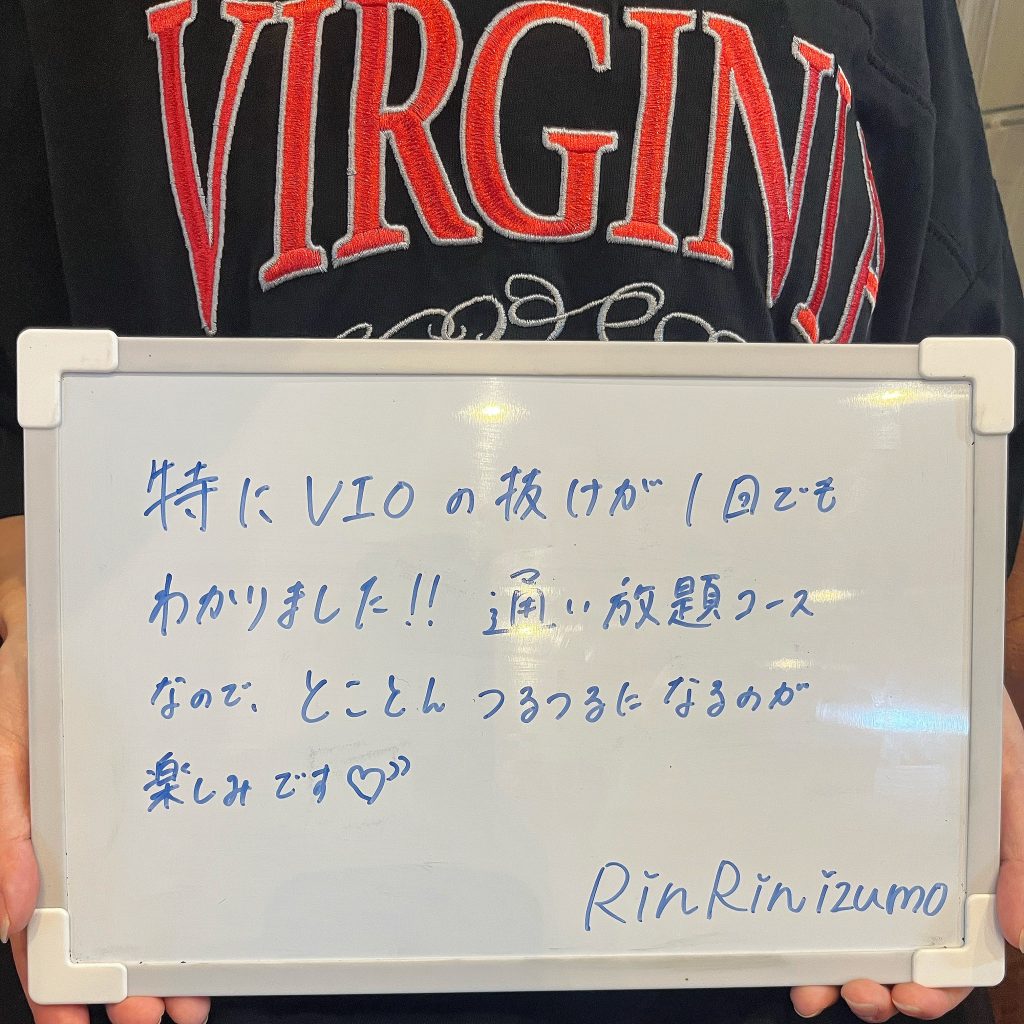 VIRGINIA
特にVIOの抜けが1回でも
わかりました!! 通い放題コース
なので、とことんつるつるになるのが
楽しみです♡”
RinRinizumo